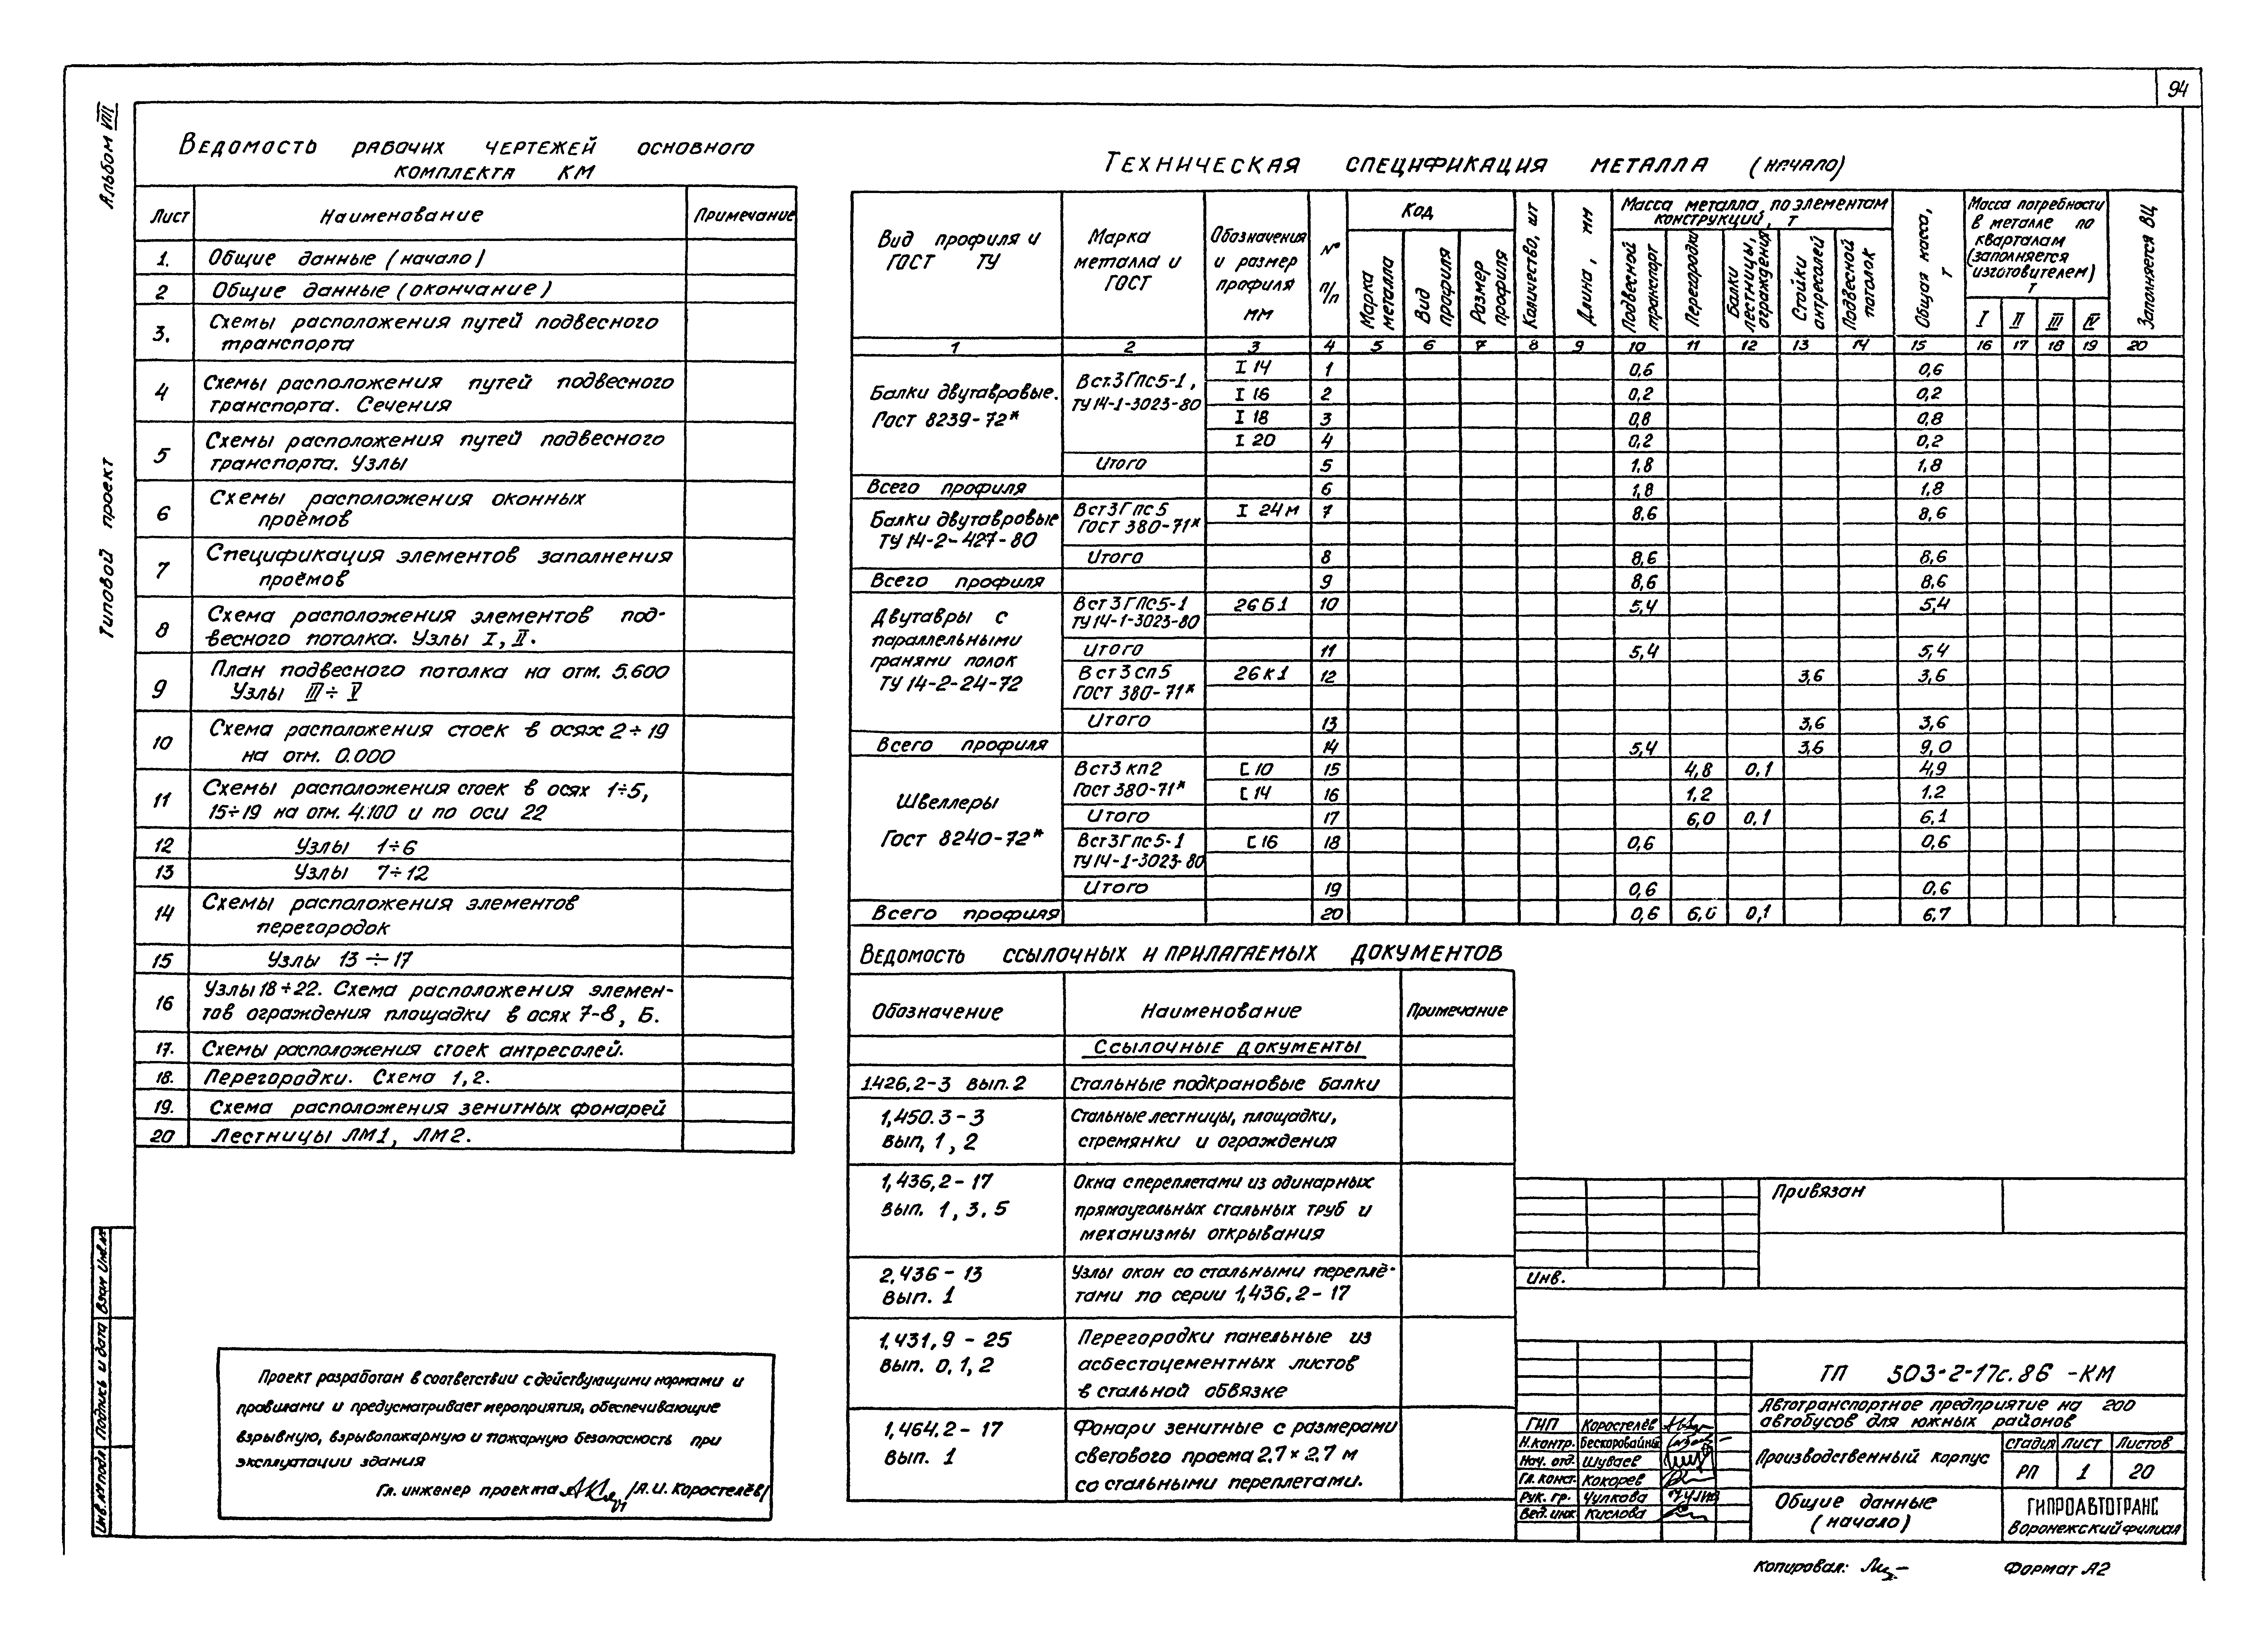 94
Альбом VIII
Типовой проект
Ведомость рабочих чертежей основного
комплекта КМ
Лист Наименование Примечание
1. Общие данные (начало)
2 Общие данные (окончание)
3. Схемы расположения путей подвесного
транспорта
4 Схемы расположения путей подвесного
транспорта. Сечения
5 Схемы расположения путей подвесного
транспорта. Узлы
6 Схемы расположения оконных
проёмов
7 Спецификация элементов заполнения
проёмов
8 Схема расположения элементов под-
весного потолка. Узлы I, II.
9 План подвесного потолка на отм. 5.600
Узлы III ÷ V
10 Схема расположения стоек в осях 2÷19
на отм. 0.000
11 Схемы расположения стоек в осях 1÷5,
15÷19 на отм. 4.100 и по оси 22
12 Узлы 1÷6
13 Узлы 7÷12
14 Схемы расположения элементов
перегородок
15 Узлы 13÷17
16 Узлы 18÷22. Схема расположения элемен-
тов ограждения площадки в осях 7-8, Б.
17. Схемы расположения стоек антресолей.
18. Перегородки. Схема 1,2.
19. Схема расположения зенитных фонарей
20 Лестницы ЛМ1, ЛМ2.
Проект разработан в соответствии с действующими нормами и
правилами и предусматривает мероприятия, обеспечивающие
взрывную, взрывопожарную и пожарную безопасность при
эксплуатации здания
Гл. инженер проекта /А.И. Коростелёв/
Инв.№подл. Подпись и дата Взам Инв.№
Техническая спецификация металла (начало)
Вид профиля и ГОСТ ТУ
Марка металла и ГОСТ
Обозначения и размер профиля мм
№ п/п
Код
Марка металла
Вид профиля
Размер профиля
Количество, шт
Длина, мм
Масса металла по элементам конструкций, т
Подвесной транспорт
Перегородки
Балки лестницы, ограждения
Стойки антресолей
Подвесной потолок
Общая масса, т
Масса потребности в металле по кварталам (заполняется изготовителем) т
I II III IV
Заполняется ВЦ
1 2 3 4 5 6 7 8 9 10 11 12 13 14 15 16 17 18 19 20
Балки двутавровые. Гост 8239-72*
Вст.3Гпс5-1, ТУ 14-1-3023-80
I 14 1 0,6 0,6
I 16 2 0,2 0,2
I 18 3 0,8 0,8
I 20 4 0,2 0,2
Итого 5 1,8 1,8
Всего профиля 6 1,8 1,8
Балки двутавровые ТУ 14-2-427-80
Вст3Гпс5 ГОСТ 380-71*
I 24м 7 8,6 8,6
Итого 8 8,6 8,6
Всего профиля 9 8,6 8,6
Двутавры с параллельными гранями полок ТУ 14-2-24-72
Вст3Гпс5-1 ТУ 14-1-3023-80
26Б1 10 5,4 5,4
Итого 11 5,4 5,4
Вст3сп5 ГОСТ 380-71*
26К1 12 3,6 3,6
Итого 13 3,6 3,6
Всего профиля 14 5,4 3,6 9,0
Швеллеры Гост 8240-72*
Вст3кп2 Гост 380-71*
[ 10 15 4,8 0,1 4,9
[ 14 16 1.2 1.2
Итого 17 6,0 0,1 6,1
Вст3Гпс5-1 ТУ14-1-3023-80
[ 16 18 0,6 0,6
Итого 19 0,6 0,6
Всего профиля 20 0,6 6,0 0,1 6,7
Ведомость ссылочных и прилагаемых документов
Обозначение Наименование Примечание
Ссылочные документы
1.426,2-3 вып.2 Стальные подкрановые балки
1,450.3-3 Стальные лестницы, площадки,
вып, 1, 2 стремянки и ограждения
1,436,2-17 Окна с переплетами из одинарных
вып. 1, 3. 5 прямоугольных стальных труб и
механизмы открывания
2,436-13 Узлы окон со стальными переплё-
вып. 1 тами по серии 1,436,2-17
1,431,9-25 Перегородки панельные из
вып. 0,1,2 асбестоцементных листов
в стальной обвязке
1,464,2-17 Фонари зенитные с размерами
вып. 1 светового проема 2,7×2,7 м
со стальными переплетами.
Привязан
Инв.
ТП 503-2-17с.86 -КМ
Автотранспортное предприятие на 200
автобусов для южных районов
ГИП Коростелёв
Н.контр. Бескоровайный
Нач. отд. Шуваев
Гл. конст. Кокорев
Рук. гр. Чулкова
Вед. инж Кислова
Производственный корпус
стадия лист Листов
РП 1 20
Общие данные
(начало)
ГИПРОАВТОТРАНС
Воронежский филиал
Копировал:
Формат А2